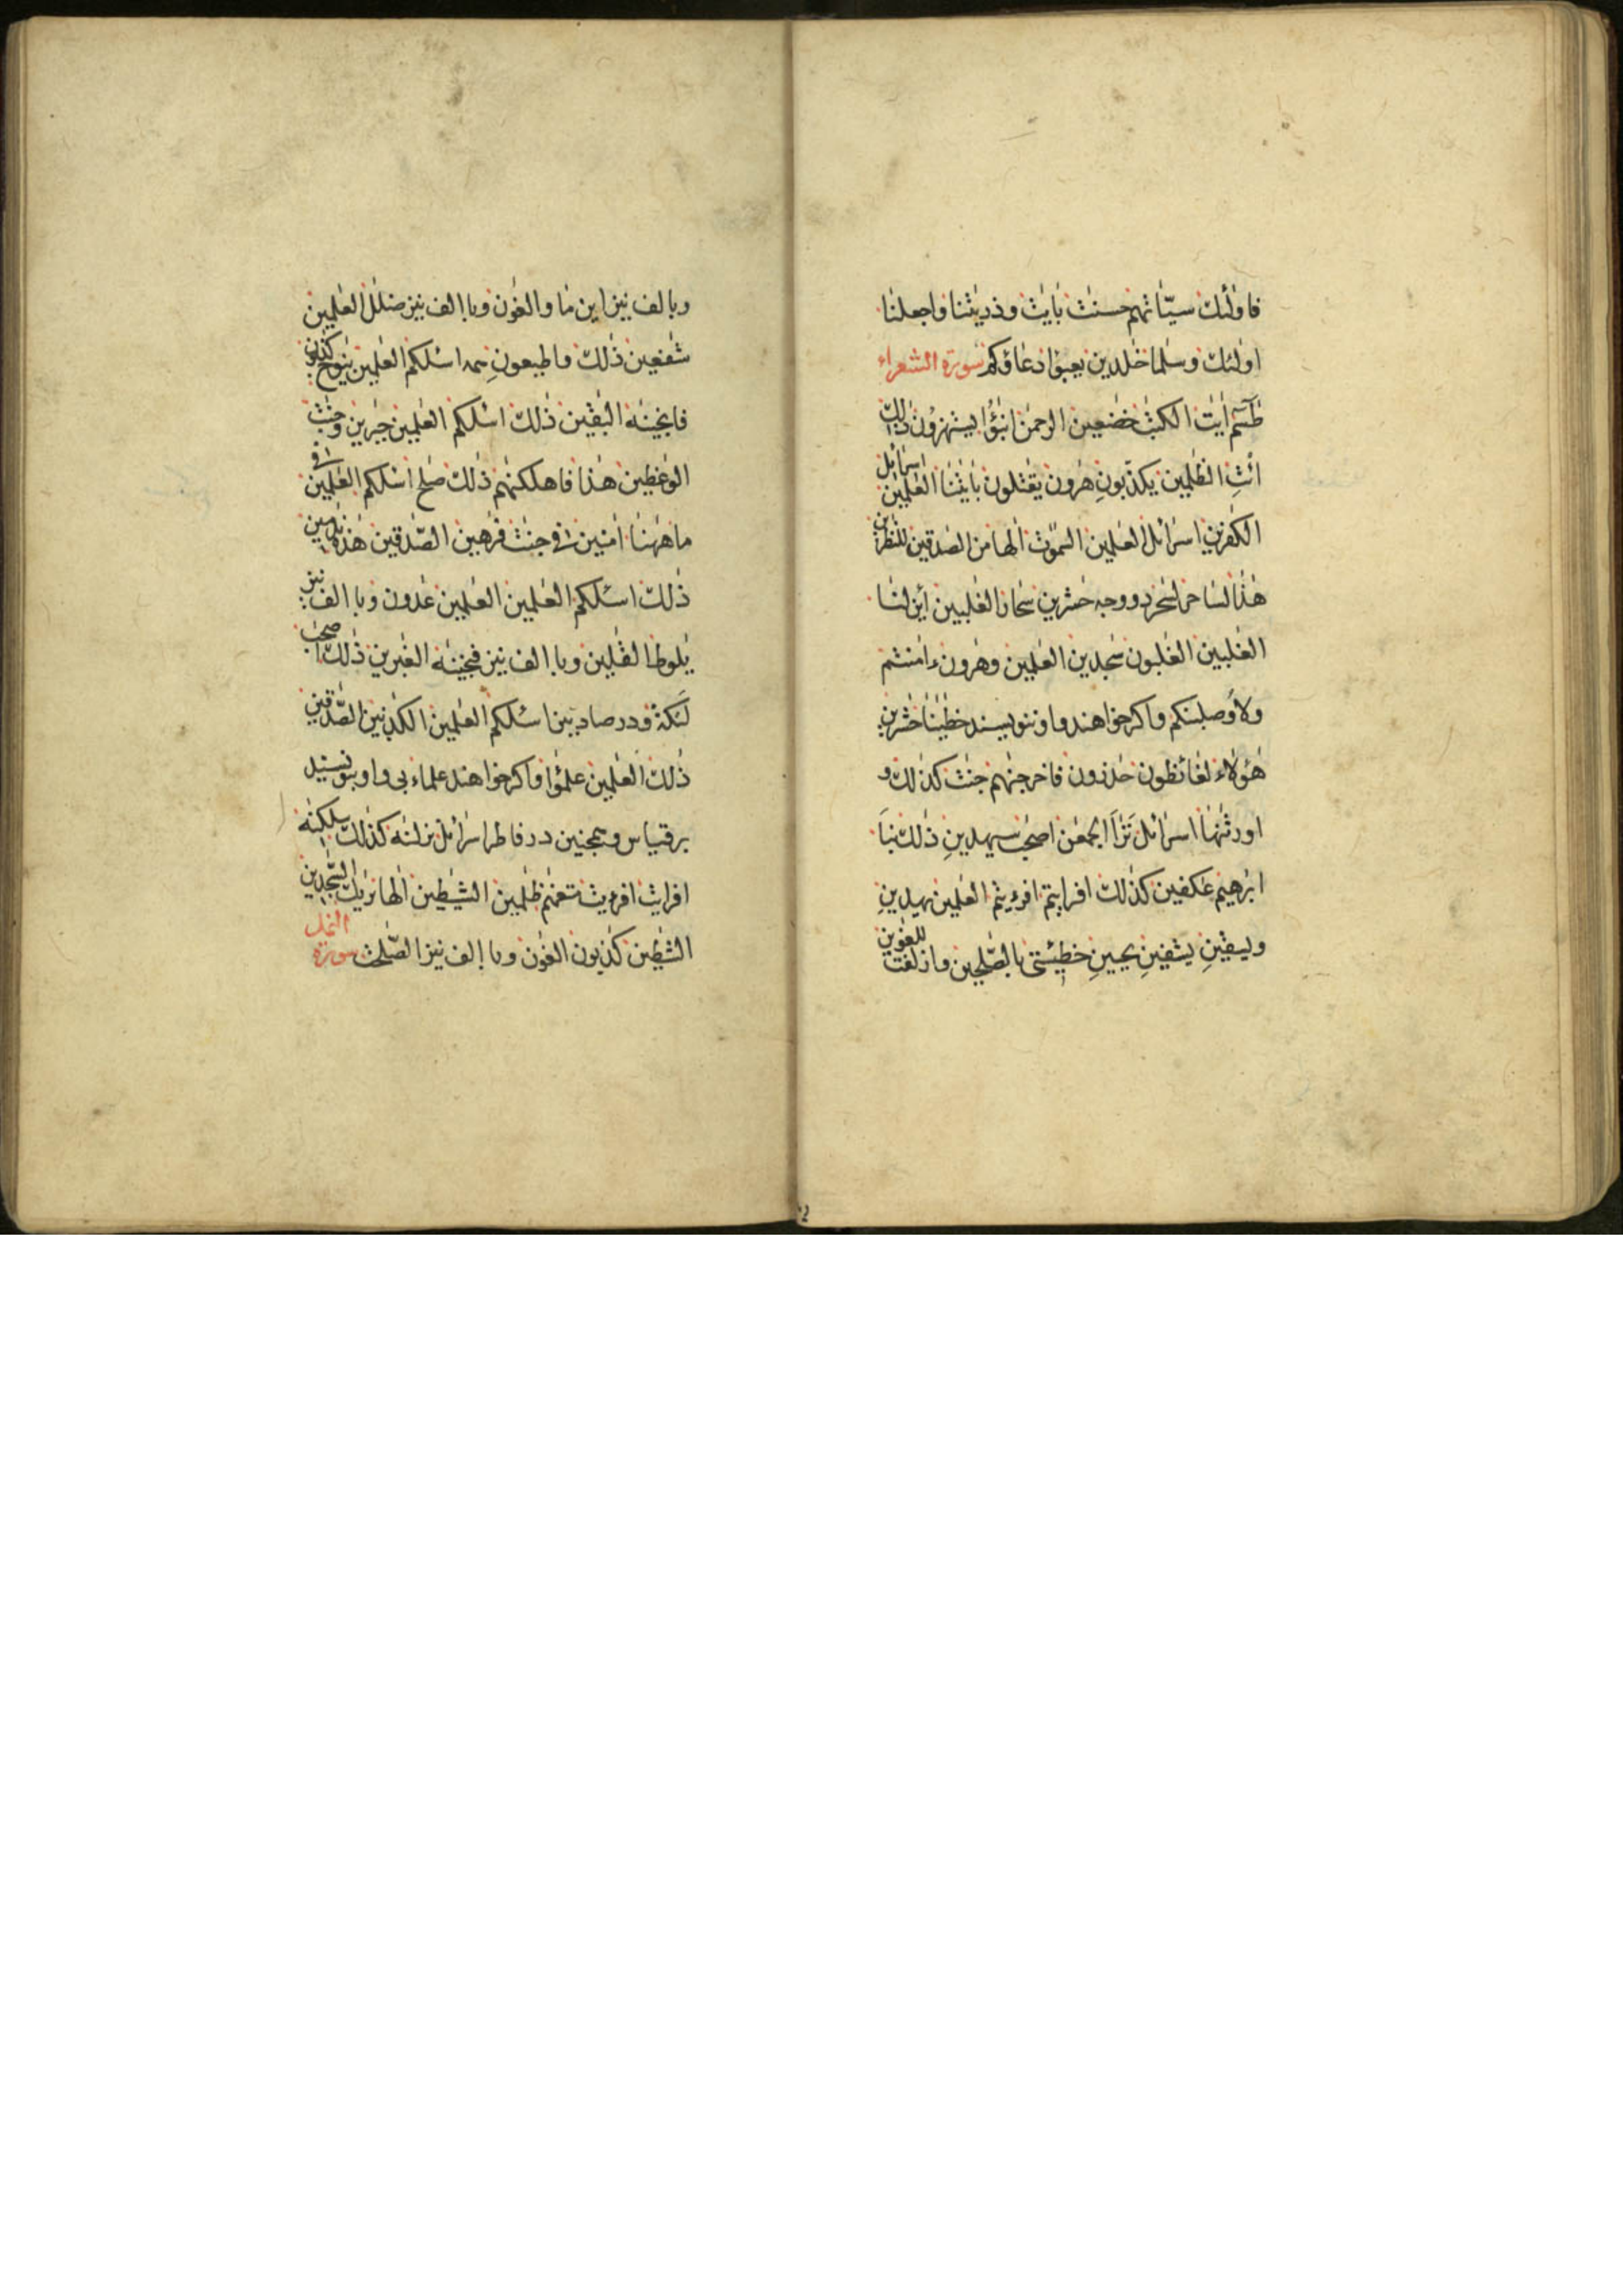 فاولٰئك سيّاٰتهم حسنٰت بايٰت وذريٰتنا واجعلنا
اولٰئك وسلٰما خٰلدين يعبؤا دعاؤكم سورة الشعراء
طٰسٓم اٰيٰت الكتٰب خٰضعين الرحمٰن انبٰؤا يستهزؤن ذٰلك
ائتِ الظٰلمين يكذّبونِ هٰرون يقتلون باٰيٰتنا العٰلمين اسرٰائل
الكٰفرين اسرٰائل العٰلمين السّمٰوٰت الٰها من الصٰدقين للنٰظرين
هٰذا لسٰاحر لسٰحر دو وجه حٰشرين سحّار الغٰلبين أئن لنا
الغٰلبين الغٰلبون سٰجدين العٰلمين وهٰرون ءاٰمنتم
ولاوصلبنكم واكر خواهند واو ننويسند خطٰيٰنا حٰشرين
هٰؤلاء لغائظون حٰذرون فاخرجنٰهم جنٰت كذٰلك و
اورثنٰها اسرٰائل تَرٰاَ الجمعٰن اصحٰب سيهدينِ ذٰلك نبا
ابرٰهيم عٰكفين كذٰلك افرايتم افرءيتم العٰلمين يهدينِ
وليسقينِ يشفينِ يحيينِ خطيٓئتى بالصّٰلحين وازلفت للغٰوين
وبالف نيز اين ما والغٰون وبا الف نيز ضلٰل العٰلمين
شٰفعين ذٰلك واطيعونِ اسٔلكم العٰلمين ينٰوح كذبون
فانجينٰه البٰقين ذٰلك اسٔلكم العٰلمين جبٰرين وجنٰت
الوٰعظين هٰذا فاهلكنٰهم ذٰلك صٰلح اسٔلكم العٰلمين فى
ما هٰهنا اٰمنين فى جنٰت فٰرهين الصّٰدقين هٰذه نٰدمين
ذٰلك اسٔلكم العٰلمين العٰلمين عٰدون وبا الف نيز
يٰلوط القٰلين وبا الف نيز فنجينٰه الغٰبرين ذٰلك اصحٰب
لَٔيكة ودر صاد اسٔلكم العٰلمين الكٰذبين الصّٰدقين
ذٰلك العٰلمين علمٰؤا واكر خواهند علماء بى واو بنويسند
بر قياس وهمچنين در فاطر اسرٰائل نزلنٰه كذٰلك سلكنٰه
افرايت افرءيت متعنٰهم ظٰلمين الشيٰطين الٰها نريٰك السّٰجدين
الشيٰطين كٰذبون الغٰون وبا الف نيز الصّٰلحٰت سورة النمل